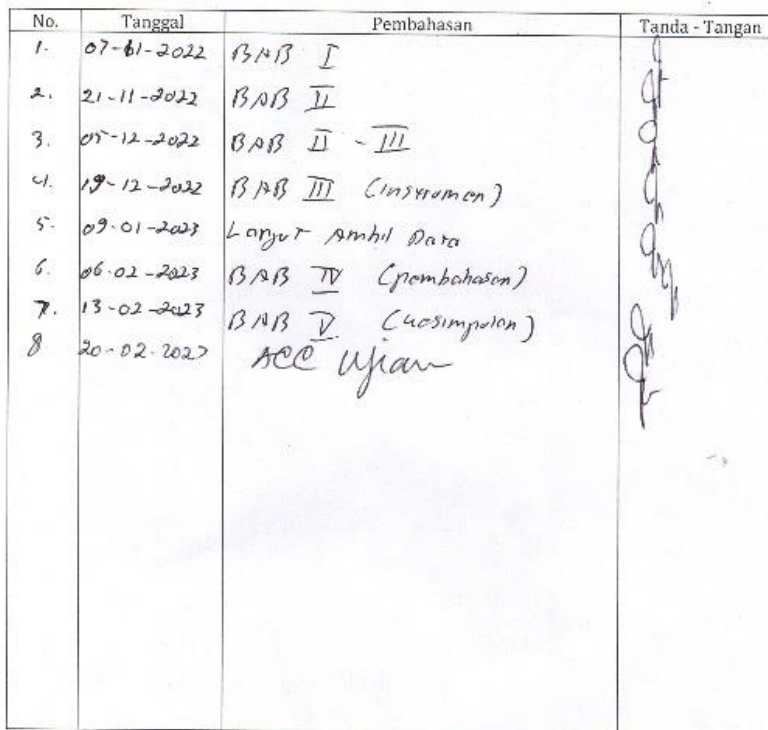 No. Tanggal Pembahasan Tanda - Tangan
1. 07-11-2022 BAB I
2. 21-11-2022 BAB II
3. 05-12-2022 BAB II - III
4. 19-12-2022 BAB III (instrumen)
5. 09-01-2023 Lanjut Ambil Data
6. 06-02-2023 BAB IV (pembahasan)
7. 13-02-2023 BAB V (kesimpulan)
8 20-02-2023 ACC Ujian